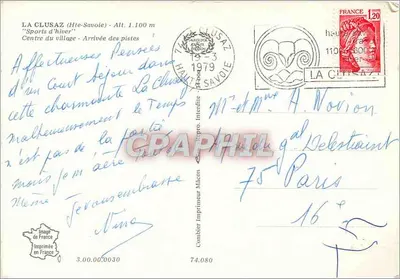 LA CLUSAZ (Hte-Savoie) - Alt. 1.100 m
"Sports d'hiver"
Centre du village - Arrivée des pistes
Affectueuses Pensées
d'un Court Séjour dans
cette charmante La Clusaz
malheureusement le Temps
n'est pas de la partie
mais j'em aère
Même Je vous embrasse
Nina
LA CLUSAZ
14-3
1979
HAUTE SAVOIE
LA CLUSAZ
1,20
Mr et Mme A. Novion
du gal Delestraint
75 Paris
16e
Combier Imprimeur Mâcon
CPAPHIL
Image
de France
Imprimée
en France
3.00.00.0030
74.080